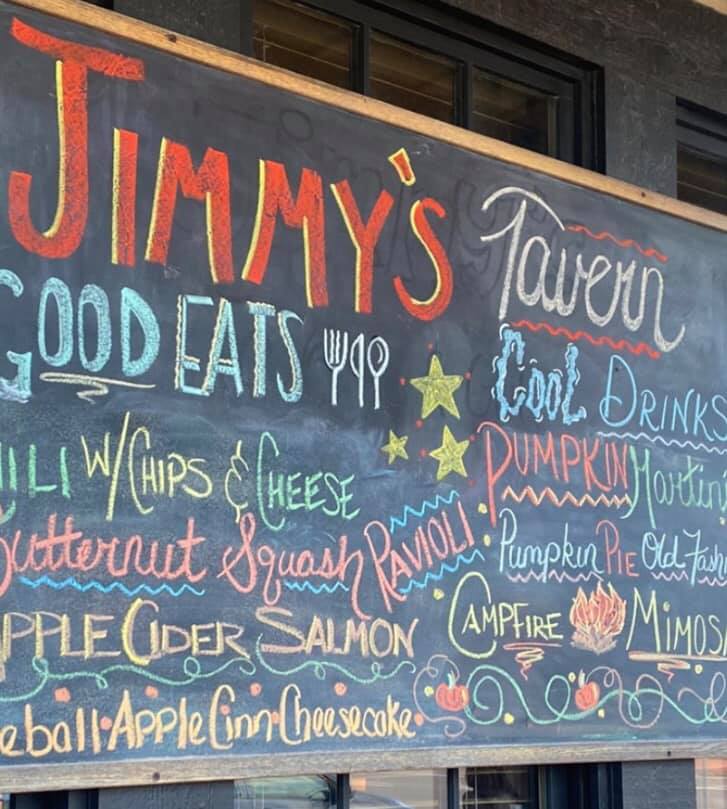 JIMMY'S Tavern
GOOD EATS
ILI W/ CHIPS & CHEESE
Butternut Squash RAVIOLI
APPLE CIDER SALMON
eball Apple Cinn Cheesecake
Cool DRINKS
PUMPKIN Martin
Pumpkin PIE Old Fash
CAMPFIRE MIMOSA